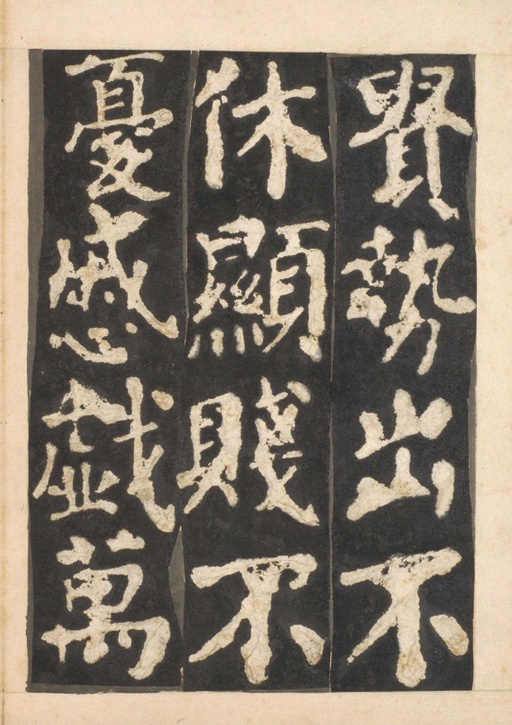 賢勢出不
休顯賤不
憂慼戲萬